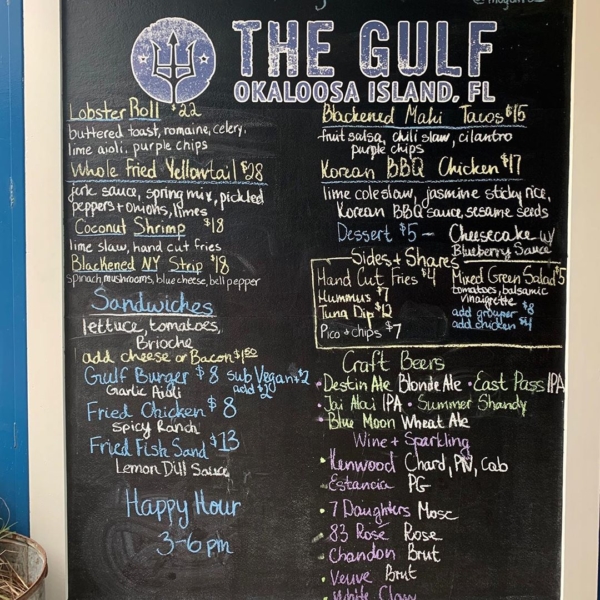 THE GULF
OKALOOSA ISLAND, FL
Lobster Roll $22
buttered toast, romaine, celery,
lime aioli, purple chips
Whole Fried Yellowtail $28
jerk sauce, spring mix, pickled
peppers + onions, limes
Coconut Shrimp $18
lime slaw, hand cut fries
Blackened NY Strip $18
spinach, mushrooms, blue cheese, bell pepper
Sandwiches
lettuce, tomatoes,
Brioche
add cheese or Bacon $1.50
Gulf Burger $8 sub Vegan +$2
Garlic Aioli add $2
Fried Chicken $8
Spicy Ranch
Fried Fish Sand $13
Lemon Dill Sauce
Happy Hour
3-6 pm
Blackened Mahi Tacos $15
fruit salsa, chili slaw, cilantro
purple chips
Korean BBQ Chicken $17
lime coleslaw, jasmine sticky rice,
Korean BBQ sauce, sesame seeds
Dessert $5 - Cheesecake w/
Blueberry Sauce
Sides + Shares
Hand Cut Fries $4
Hummus $7
Tuna Dip $12
Pico + chips $7
Mixed Green Salad $5
tomatoes, balsamic
vinaigrette
add grouper $8
add chicken $4
Craft Beers
• Destin Ale Blonde Ale • East Pass IPA
• Jai Alai IPA • Summer Shandy
• Blue Moon Wheat Ale
Wine + Sparkling
• Kenwood Chard, PN, Cab
• Estancia PG
• 7 Daughters Mosc
• 83 Rose Rose
• Chandon Brut
• Veuve Brut
• White Claw